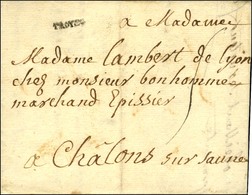 TROYES
a Madame
Madame Lambert de Lyon
chez monsieur bonhomme
marchand Epissier
a Châlons sur saune